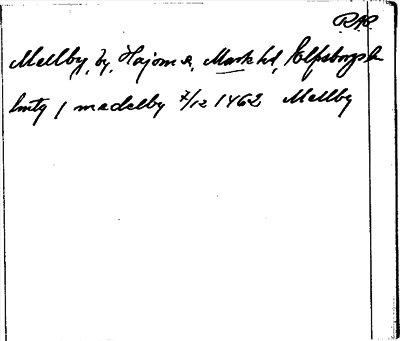 RAP
Mellby, by, Hajom s, Mark hd, Elfsborgs l
hmtg / madelby 7/12 1462 Mellby